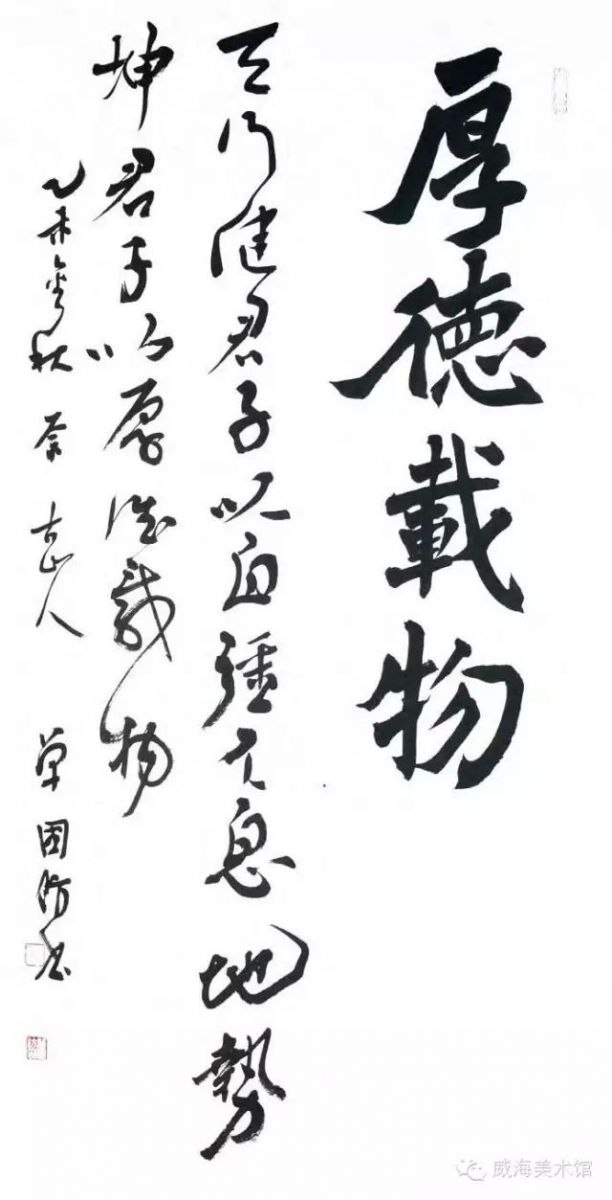 厚德載物
天行健君子以自彊不息地勢
坤君子以厚德載物
乙未金秋 奈古山人 單國防書
威海美术馆